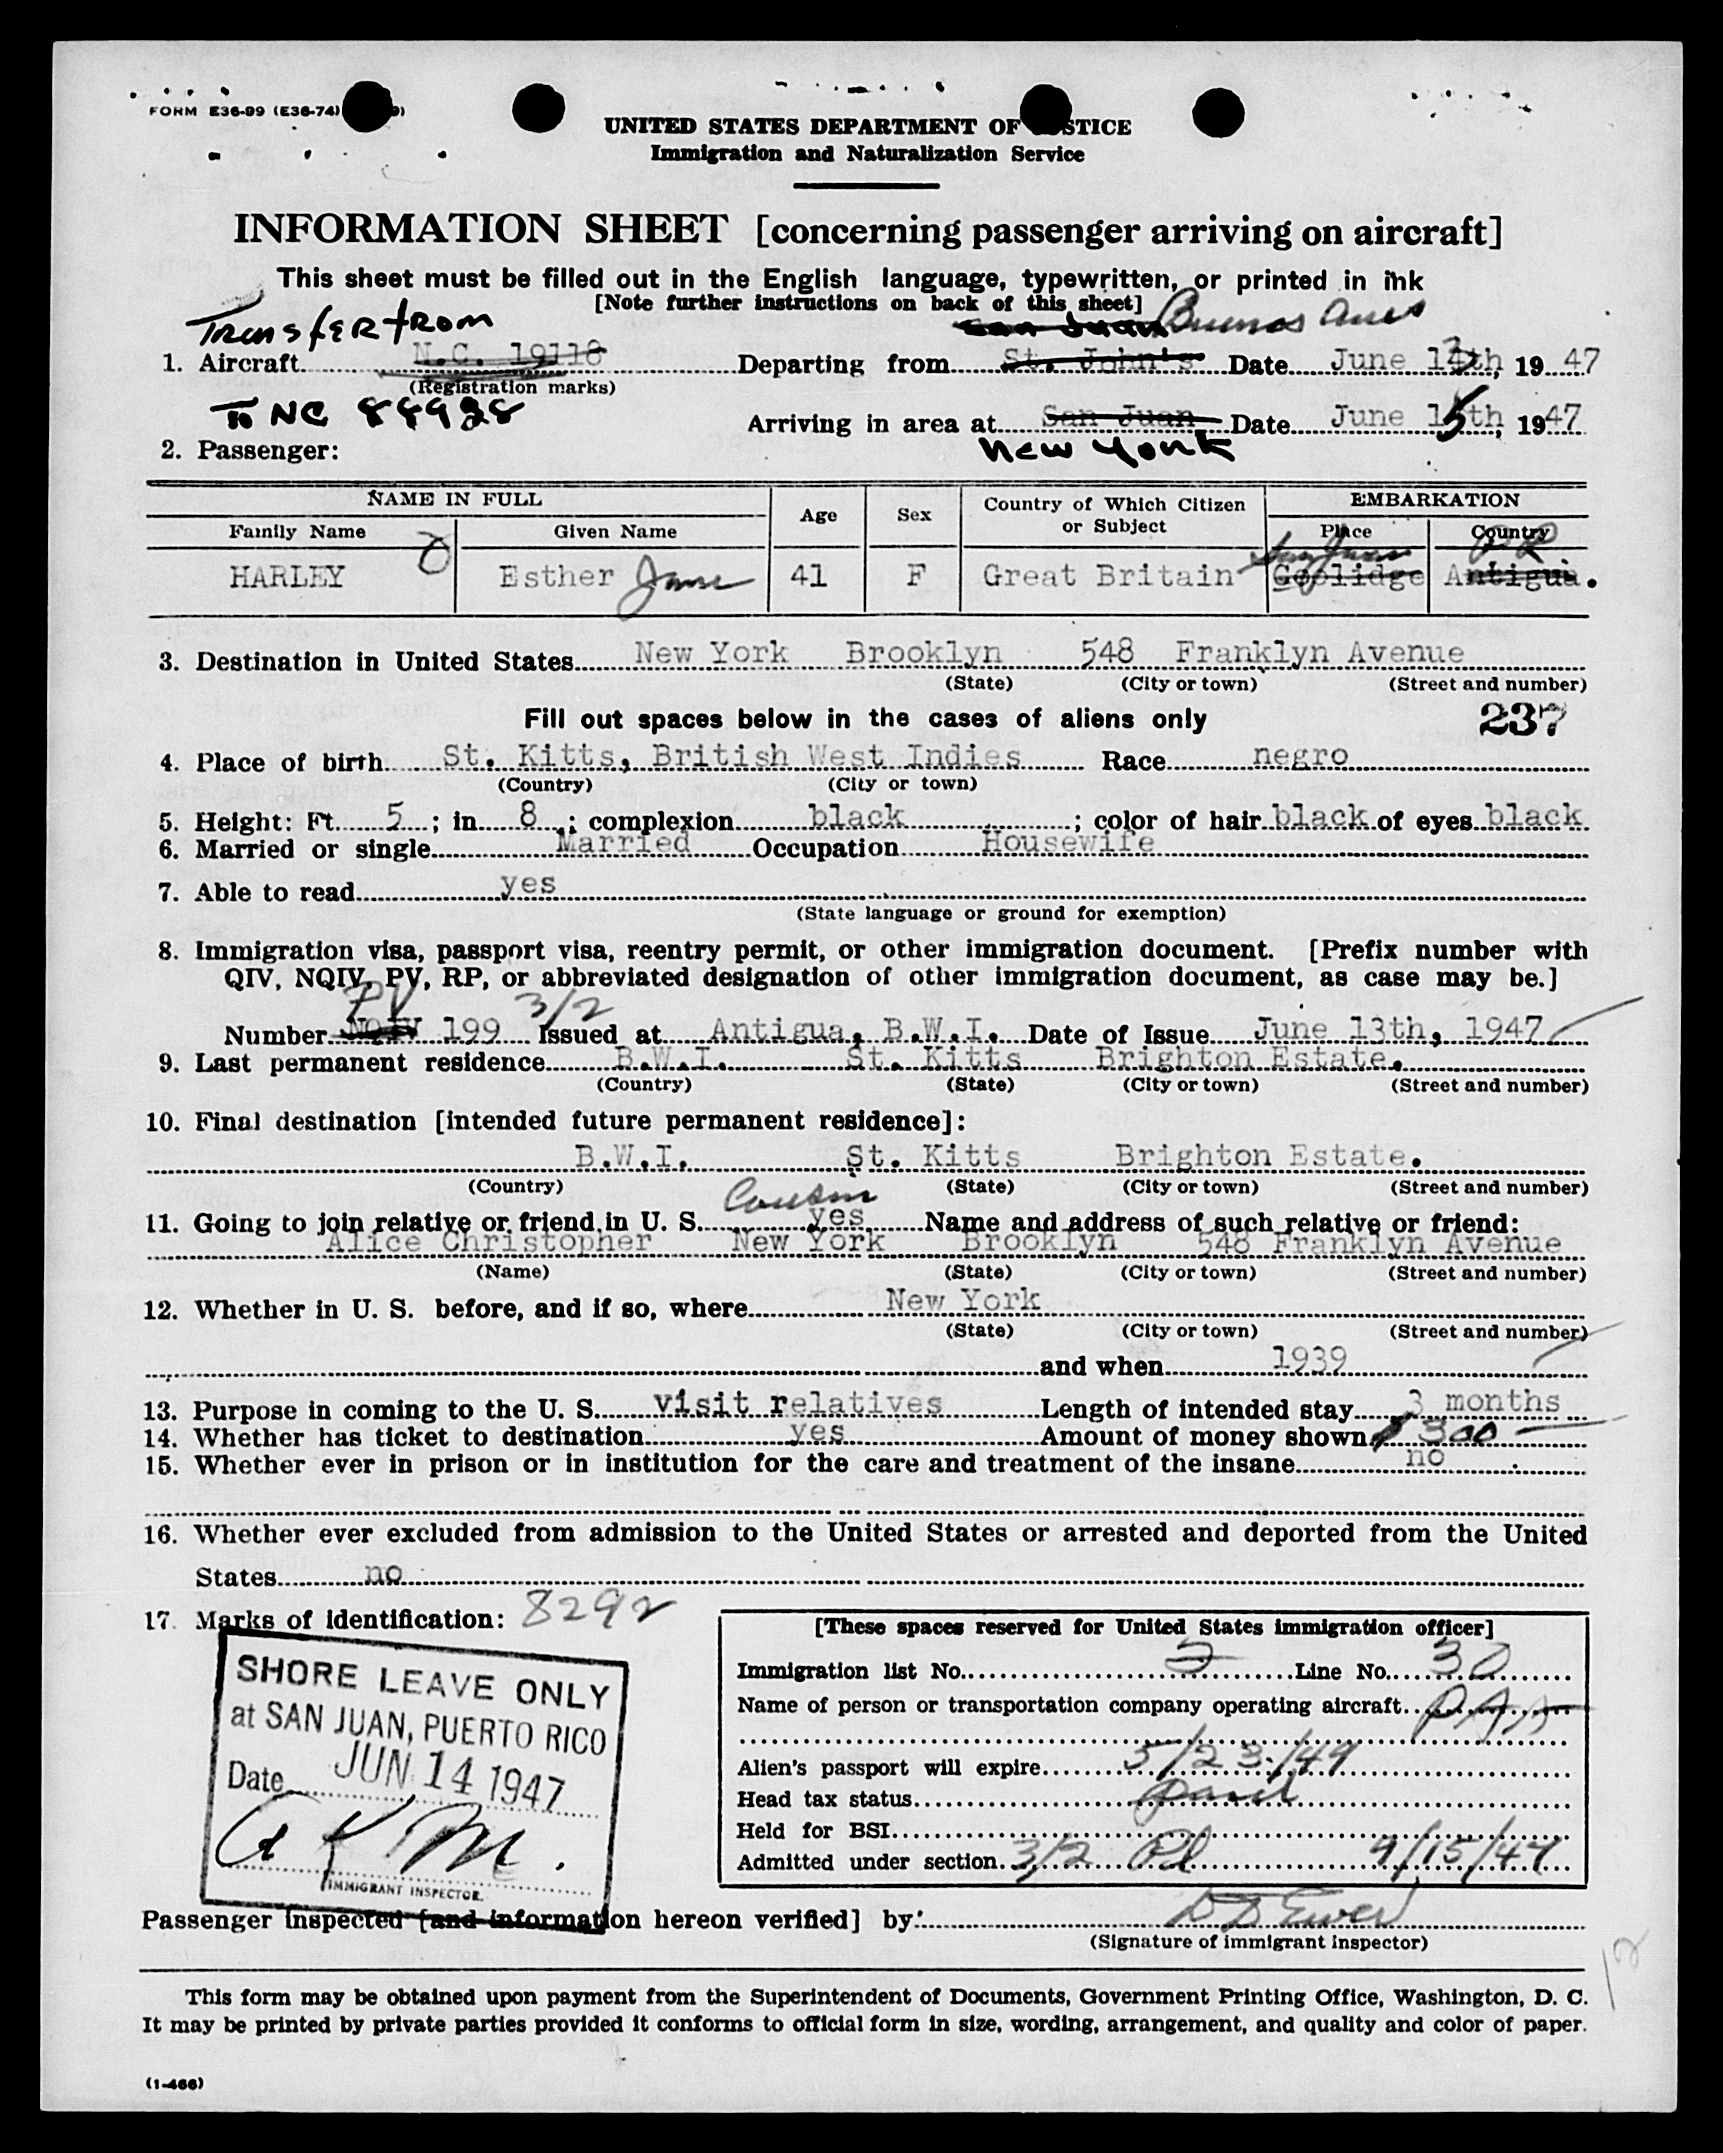 FORM E36-99 (E36-74)
UNITED STATES DEPARTMENT OF JUSTICE
Immigration and Naturalization Service
INFORMATION SHEET [concerning passenger arriving on aircraft]
This sheet must be filled out in the English language, typewritten, or printed in ink
[Note further instructions on back of this sheet]
Transfer from San Juan Buenos Aires
1. Aircraft N.C. 19118 Departing from St. John's Date June 13th, 19 47
(Registration marks)
To NC 88928
Arriving in area at San Juan Date June 15th, 1947
New York
2. Passenger:
NAME IN FULL Age Sex Country of Which Citizen or Subject EMBARKATION
Family Name Given Name Place Country
San Juan PR
HARLEY Esther Jane 41 F Great Britain Coolidge Antigua.
3. Destination in United States New York Brooklyn 548 Franklyn Avenue
(State) (City or town) (Street and number)
Fill out spaces below in the cases of aliens only 237
4. Place of birth St. Kitts, British West Indies Race negro
(Country) (City or town)
5. Height: Ft. 5; in. 8; complexion black; color of hair black of eyes black
6. Married or single Married Occupation Housewife
7. Able to read yes
(State language or ground for exemption)
8. Immigration visa, passport visa, reentry permit, or other immigration document. [Prefix number with
QIV, NQIV, PV, RP, or abbreviated designation of other immigration document, as case may be.]
PV 3/2
Number NQIV 199 Issued at Antigua, B.W.I. Date of Issue June 13th, 1947
9. Last permanent residence B.W.I. St. Kitts Brighton Estate.
(Country) (State) (City or town) (Street and number)
10. Final destination [intended future permanent residence]:
B.W.I. St. Kitts Brighton Estate.
(Country) (State) (City or town) (Street and number)
Cousin
11. Going to join relative or friend in U. S. yes Name and address of such relative or friend:
Alice Christopher New York Brooklyn 548 Franklyn Avenue
(Name) (State) (City or town) (Street and number)
12. Whether in U. S. before, and if so, where New York
(State) (City or town) (Street and number)
and when 1939
13. Purpose in coming to the U. S. visit relatives Length of intended stay 3 months
14. Whether has ticket to destination yes Amount of money shown $ 300
15. Whether ever in prison or in institution for the care and treatment of the insane no
16. Whether ever excluded from admission to the United States or arrested and deported from the United
States no
17. Marks of identification: 8292
SHORE LEAVE ONLY
at SAN JUAN, PUERTO RICO
Date JUN 14 1947
IMMIGRANT INSPECTOR.
[These spaces reserved for United States immigration officer]
Immigration list No. 5 Line No. 30
Name of person or transportation company operating aircraft PAA
Alien's passport will expire 5/23/49
Head tax status paid
Held for BSI
Admitted under section 3/2 9/15/47
Passenger Inspected [and information hereon verified] by:
(Signature of immigrant inspector)
12
This form may be obtained upon payment from the Superintendent of Documents, Government Printing Office, Washington, D. C.
It may be printed by private parties provided it conforms to official form in size, wording, arrangement, and quality and color of paper.
(1-466)